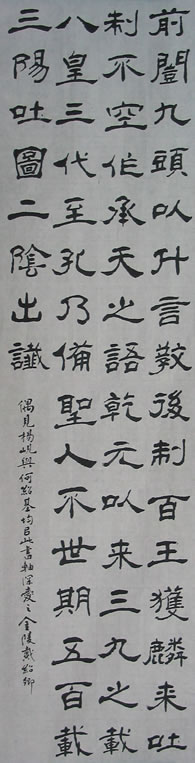 前闓九頭以什言教後制百王獲麟来吐
制不空作承天之語乾元以来三九之載
八皇三代至孔乃備聖人不世期五百載
三陽吐圖二陰出讖
偶見楊峴與何紹基均有此書軸深愛之金陵戴紹卿